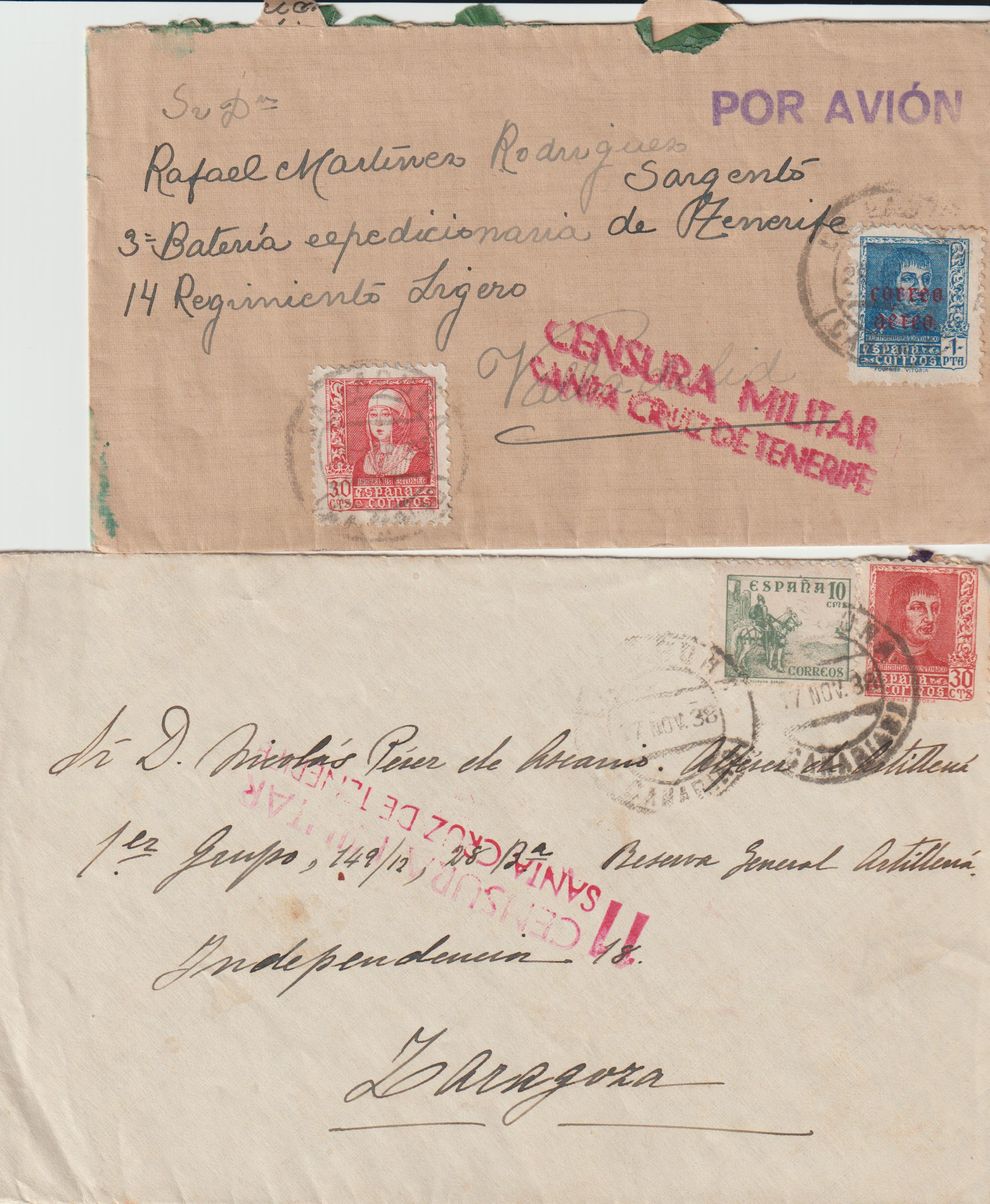 POR AVIÓN
Sr Dn
Rafael Martínez Rodriguez
Sargento
3ª Batería expedicionaria de Tenerife
14 Regimiento Ligero
Valladolid
CENSURA MILITAR
SANTA CRUZ DE TENERIFE
correo
aéreo
ESPAÑA
CORREOS
-1-
PTA
FOURNIER. VITORIA
30
CTS
ESPAÑA
CORREOS
ESPAÑA 10
CTMS
CORREOS
ESPAÑA
CORREOS
30
CTS
17 NOV. 38
CANARIAS
17 NOV. 38
CANARIAS
Sr. D. Nicolás Pérez de Ascanio. Alférez de Artillería
1er Grupo, 149/12, 28 Bª Reserva General Artillería.
CENSURA MILITAR
SANTA CRUZ DE TENERIFE
11
Independencia 18.
Zaragoza